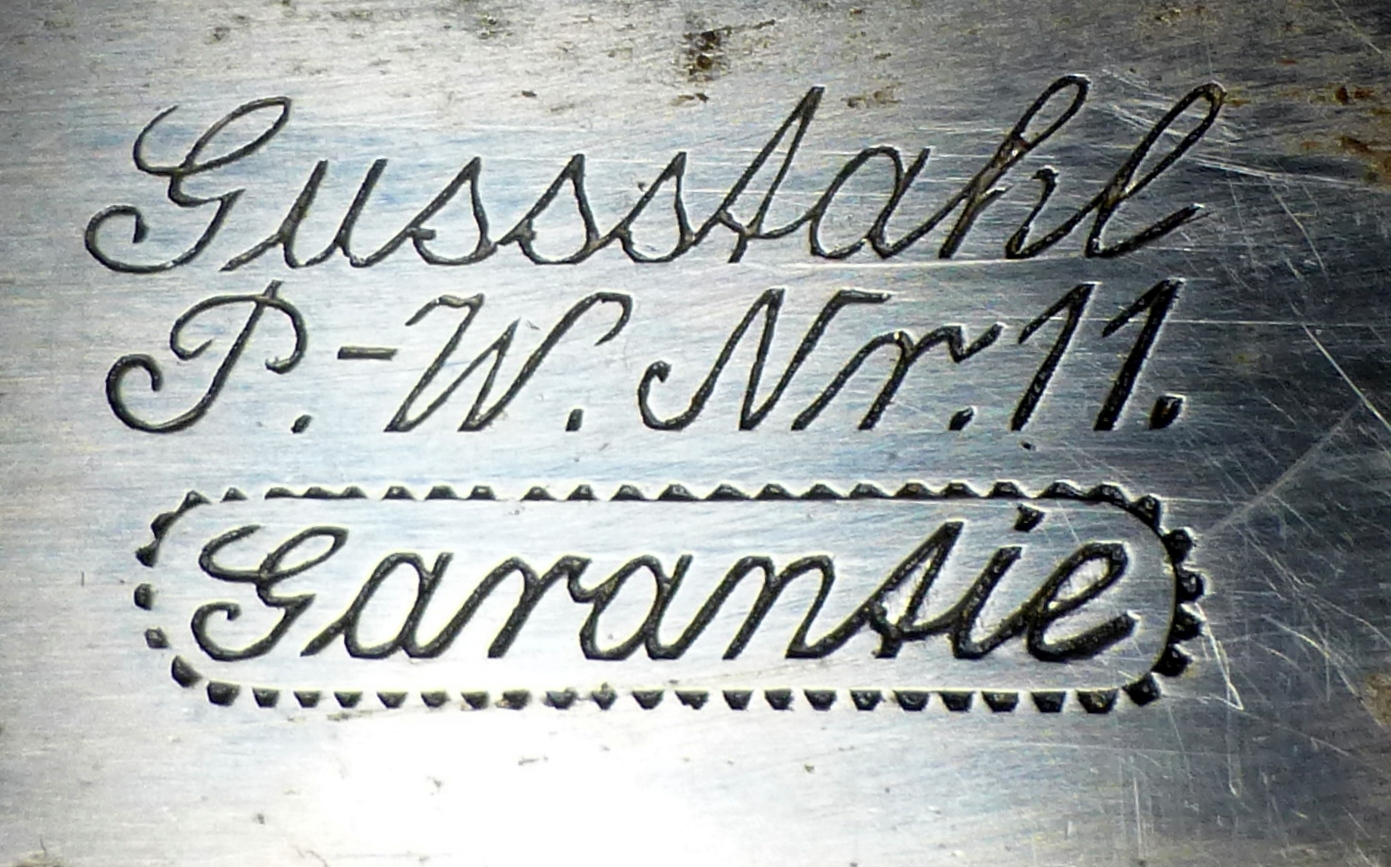 Gussstahl
P.-W. Nr. 11.
Garantie